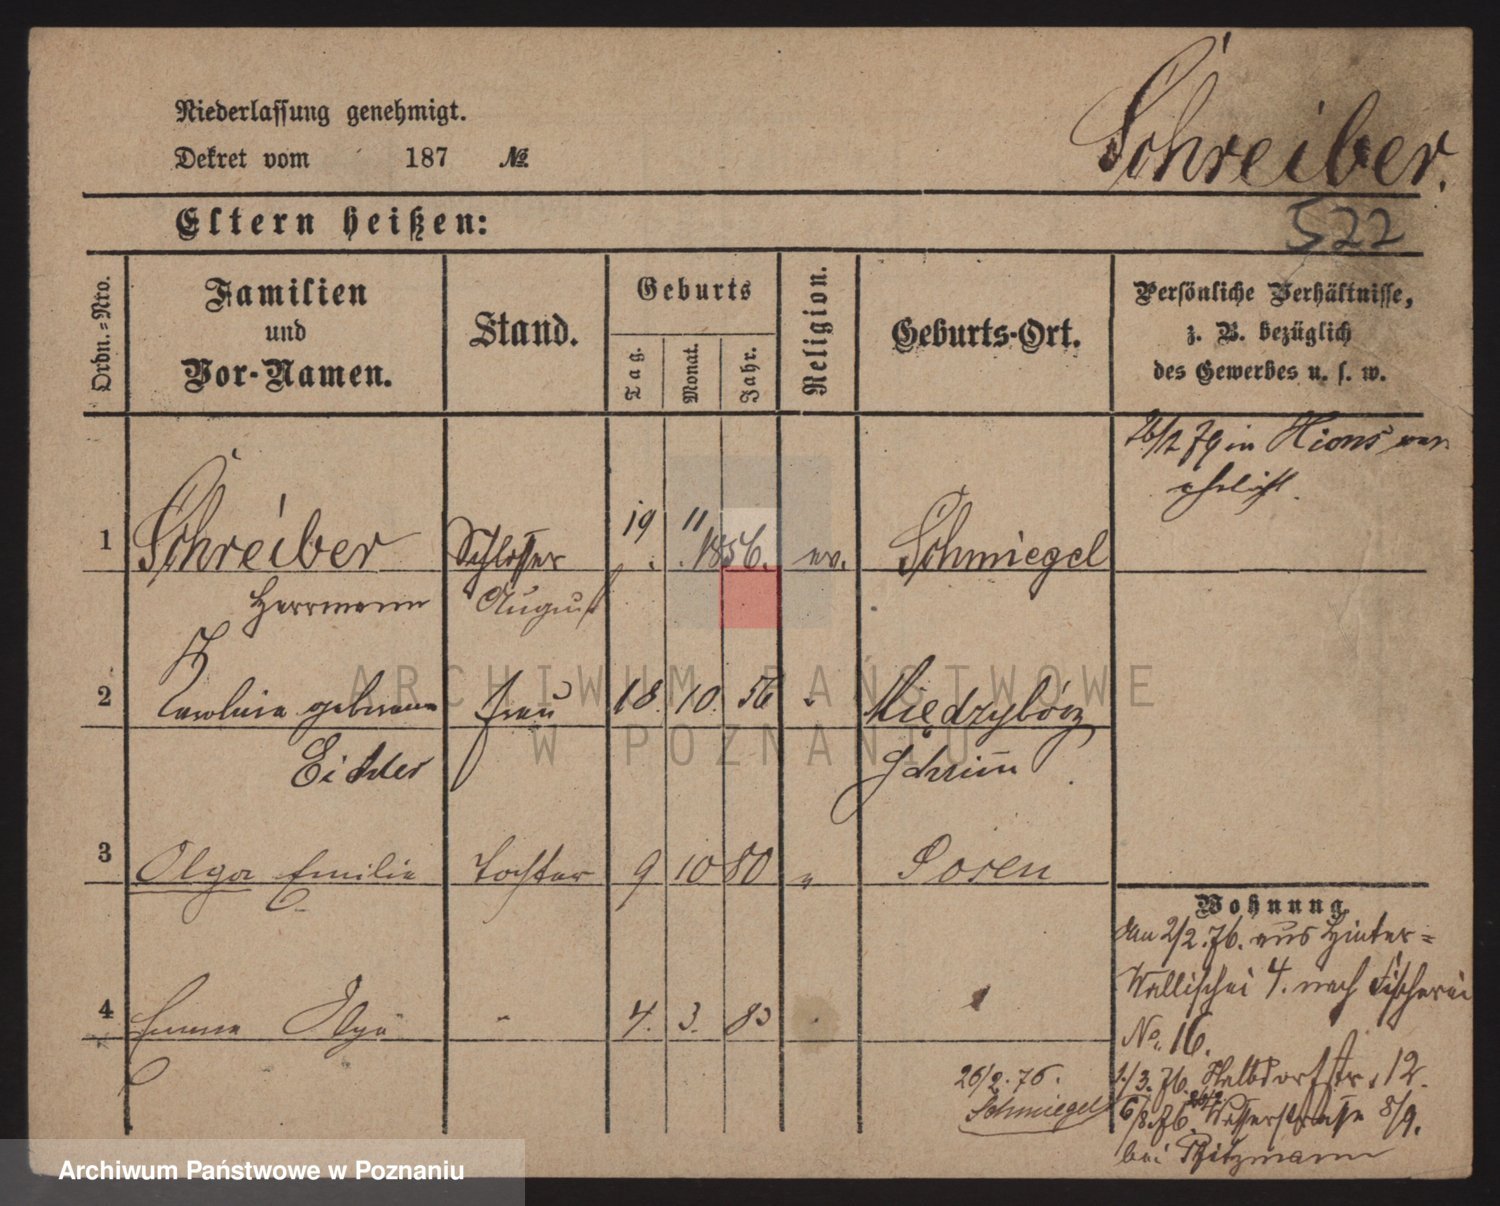 Schreiber.
Niederlassung genehmigt.
Dekret vom 187 №
522
Eltern heißen:
Ordn.-Nro.
Familien und Vor-Namen.
Stand.
Geburts
Tag. Monat. Jahr.
Religion.
Geburts-Ort.
Persönliche Verhältnisse,
z. B. bezüglich
des Gewerbes u. s. w.
79 in Xions ver
ehelicht.
1 Schreiber Schlosser 19 11 1856. ev. Schmiegel
Herrmann August
2 geborene Frau 18. 10. 56 " Międzybórz
Eichler Schrimm
3 Olga Emilie Tochter 9 10 80 " Posen
4 Emma Olga " 4. 3. 83
Wohnung
den 2/2.76. aus Hinter-
Wallischei 4. nach Fischerei
No. 16.
1/3.76. Halbdorfstr. 12.
6/8.76. Wasserstraße 8/9.
bei
26/2.76.
Schmiegel
ARCHIWUM PAŃSTWOWE
W POZNANIU
Archiwum Państwowe w Poznaniu